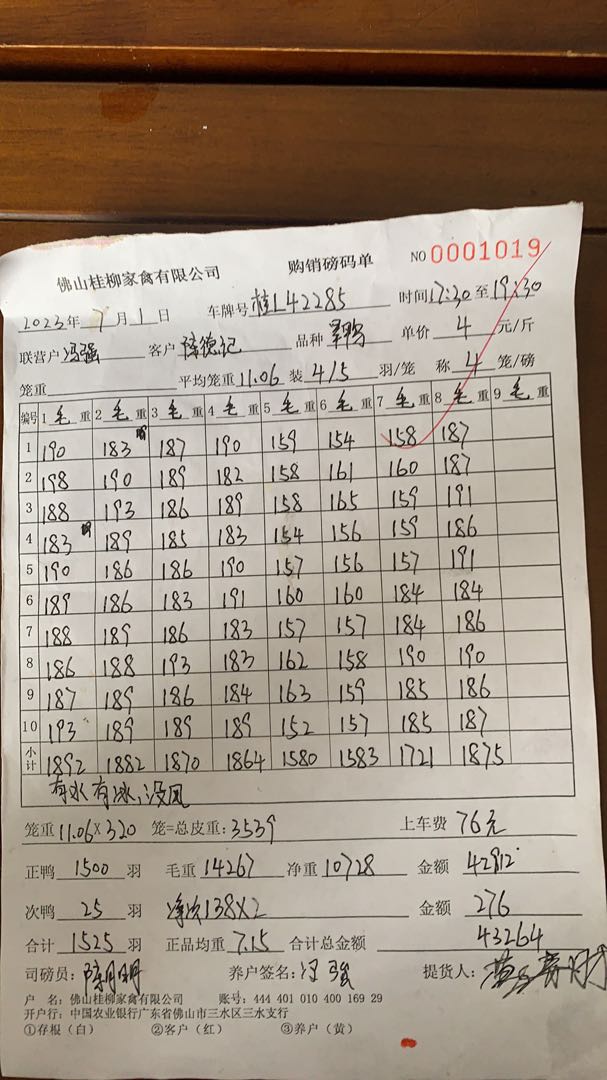 佛山桂柳家禽有限公司 购销磅码单 NO 0001019
2023年 7月 1日 车牌号 桂L42285 时间 17:30 至 19:30
联营户 冯强 客户 陈德记 品种 单价 4 元/斤
笼重 平均笼重 11.06 装 4/5 羽/笼 称 4 笼/磅
编号 1 毛重 2 毛重 3 毛重 4 毛重 5 毛重 6 毛重 7 毛重 8 毛重 9 毛重
1 190 183 187 190 159 154 158 187
2 198 190 189 182 158 161 160 187
3 188 193 186 189 158 165 159 191
4 183 189 185 183 154 156 159 186
5 190 186 186 190 157 156 157 191
6 189 186 183 191 160 160 184 184
7 188 189 186 183 157 157 184 186
8 186 188 193 183 162 158 190 190
9 187 189 186 184 163 159 185 186
10 193 189 189 189 152 157 185 187
小计 1892 1882 1870 1864 1580 1583 1721 1875
有水有冰,没风
笼重 11.06×320 笼=总皮重: 3539 上车费 76元
正鸭 1500 羽 毛重 14267 净重 10728 金额 42912
次鸭 25 羽 净次138×2 金额 276
合计 1525 羽 正品均重 7.15 合计总金额 43264
司磅员: 陈月明 养户签名: 冯强 提货人:
户 名: 佛山桂柳家禽有限公司 账号: 444 401 010 400 169 29
开户行: 中国农业银行广东省佛山市三水区三水支行
①存根(白) ②客户(红) ③养户(黄)